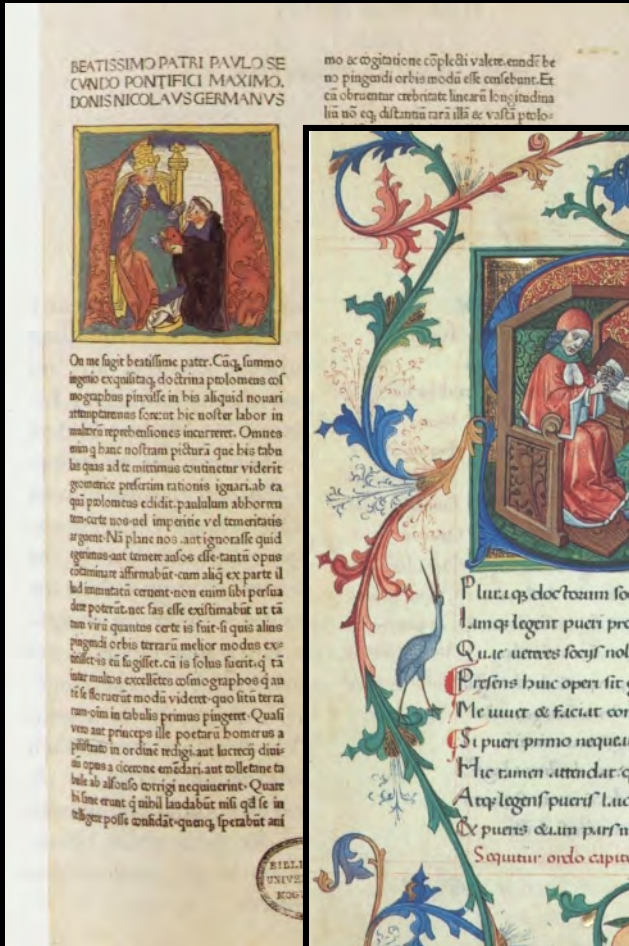 BEATISSIMO PATRI PAVLO SE
CVNDO PONTIFICI MAXIMO.
DONIS NICOLAVS GERMANVS
On me fugit beatissime pater. Cūq; summo
ingenio exquisitaq; doctrina ptolomeus cos
mographus pinxisse in his aliquid nouari
attemptaremus foret ut hic noster labor in
multorū reprehensiones incurreret. Omnes
enim q hanc nostram picturā que his tabu
lis quas ad te mittimus continetur viderit
geometrice presertim rationis ignari. ab ea
quā ptolomeus edidit. paululum abhorren
tem. certe nos uel imperitie vel temeritatis
arguent. Nā plane nos. aut ignorasse quid
egerimus. aut temere ausos esse. tantū opus
cōtaminare affirmabūt. cum aliq ex parte il
lud immutatū cernent. non enim sibi persua
dere poterūt. nec fas esse existimabūt ut tā
tum virū quantus certe is fuit. si quis alius
pingendi orbis terrarū melior modus ex
titisset. is eū fugisset. cū is solus fuerit. q tā
inter multos excellētes cosmographos q an
te se floruerūt modū videret. quo sitū terra
rum. oīm in tabulis primus pingeret. Quasi
vero aut princeps ille poetarū homerus a
pisistrato in ordinē redigi. aut lucrecij diui
nū opus a cicerone emēdari. aut tolletane ta
bule ab alfonso corrigi nequiuerint. Quare
hi sane erunt q nihil laudabūt nisi qd se in
telligere posse confidāt. quenq; sperabūt ani
mo & cogitatione cōplecti valere. eundē be
no pingendi orbis modū esse censebunt. Et
cū obruentur crebritate linearū longitudina
liū nō eq; distantiū rara illā & vastā ptolo-
BIBLI
UNIVE
MOG
Plura qz doctorum so
Lim qz legent pueri pro
Quae ueteres socijs nol
Presens huic operi sit g
Me iuuet & faciat con
Si pueri primo nequeu
Hic tamen attendat q
Atqz legens pueris Laic
Ex pueris quim pars m
Sequitur ordo capitu